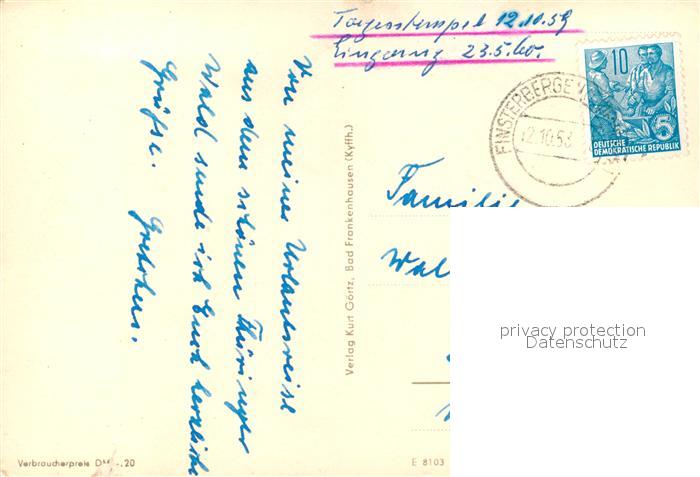 Tagesstempel 12.10.59
Eingang 23.5.60.
FINSTERBERGEN
12.10.59
10
5
DEUTSCHE
DEMOKRATISCHE REPUBLIK
Von meiner Urlaubsreise
aus dem schönen Thüringer
Wald sende ich Euch herzliche
Grüsse.
Verlag Kurt Görtz, Bad Frankenhausen (Kyffh.)
Familie
Wal
privacy protection
Datenschutz
Verbraucherpreis DM -,20
E 8103